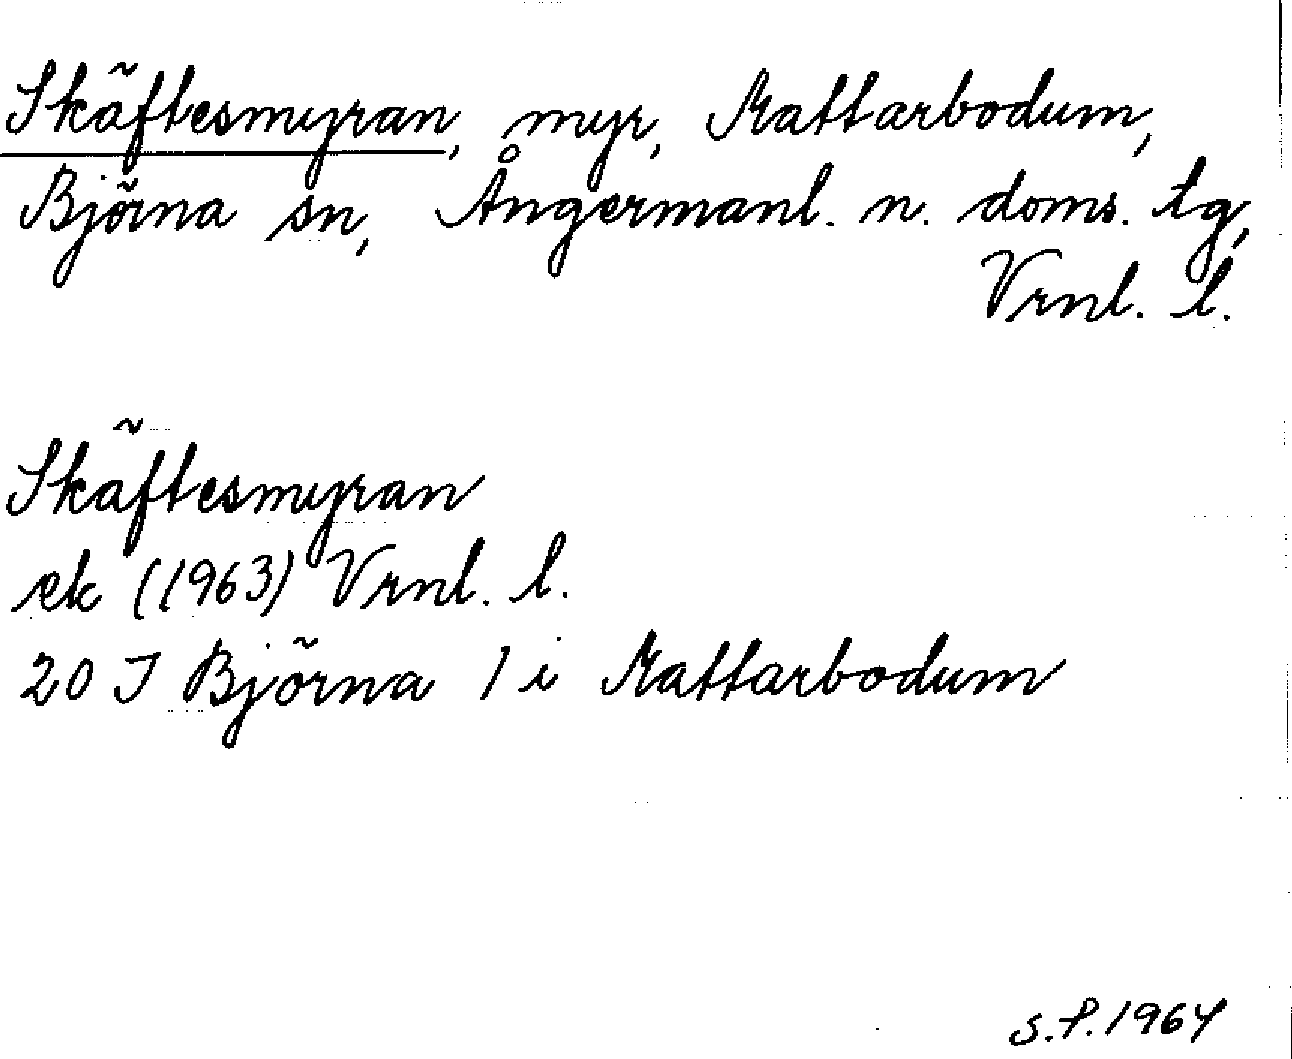 Skäftesmyran, myr, Mattarbodum,
Björna sn, Ångermanl. n. doms. tg,
Vrnl. l.
Skäftesmyran
ek (1963) Vrnl. l.
20 I Björna 1 i Mattarbodum
S.P. 1964